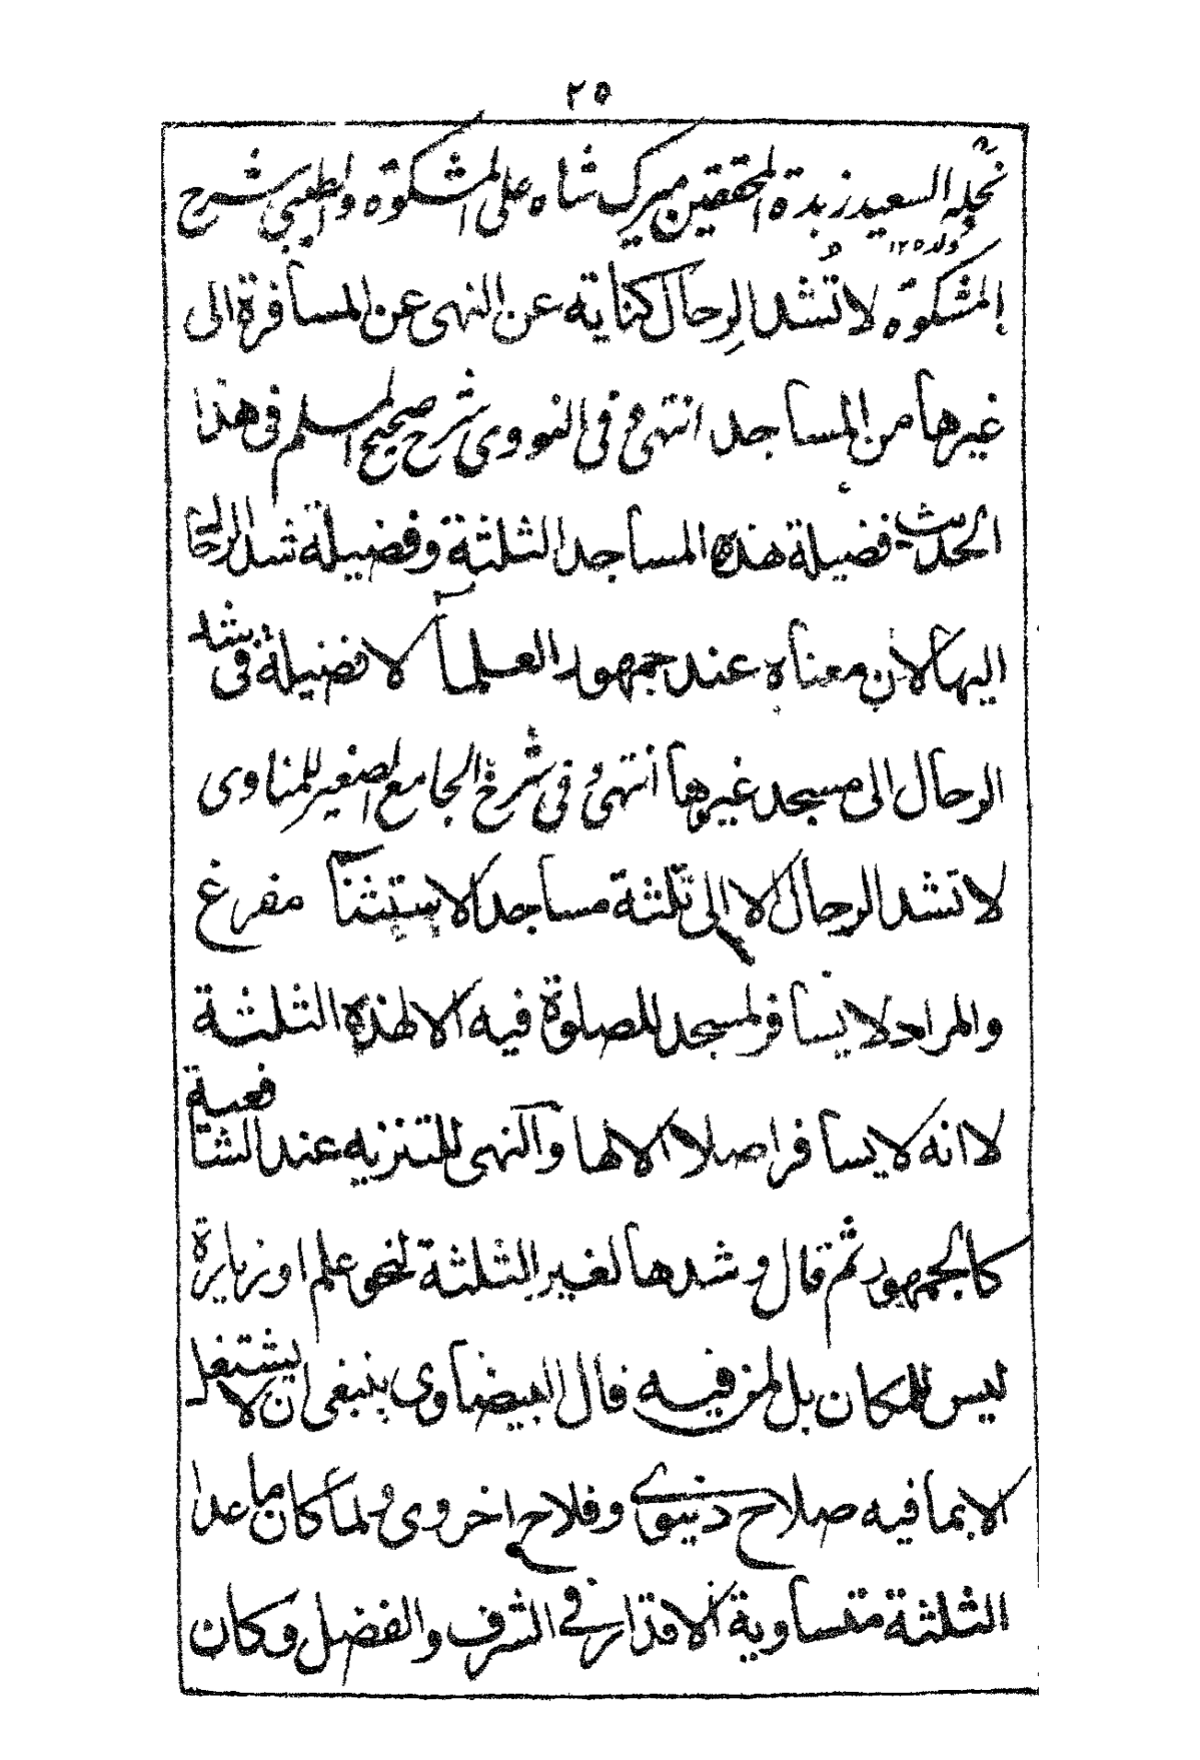 ٢٥
نجله السعيد زبدة المحققين ميرك شاه على المشكوة والطيبى شرح
المشكوة لا تُشد الرِحال كناية عن النهى عن المسافرة الى
غيرها من المساجد انتهى و فى النووى شرح صحيح المسلم فى هذا
الحديث فضيلة هذه المساجد الثلثة وفضيلة شد الرحال
اليها لان معناه عند جمهور العلمآ لا فضيلة فى شد
الرحال الى مسجد غيرها انتهى و فى شرح الجامع الصغير للمناوى
لا تشد الرحال الا الى ثلثة مساجد الاستثنآ مفرغ
والمراد لا يسافر لمسجد للصلوة فيه الا لهذه الثلثة
لا انه لا يسافر اصلا الا لها والنهى للتنزيه عند الشافعية
كالجمهور ثم قال وشدها لغير الثلثة لنحو علم او زيارة
ليس للمكان بل لمن فيه قال البيضاوى ينبغى ان لا يشتغل
الا بما فيه صلاح دنيوى وفلاح اخروى ولما كان ما عدا
الثلثة متساوية الاقدار فى الشرف والفضل وكان